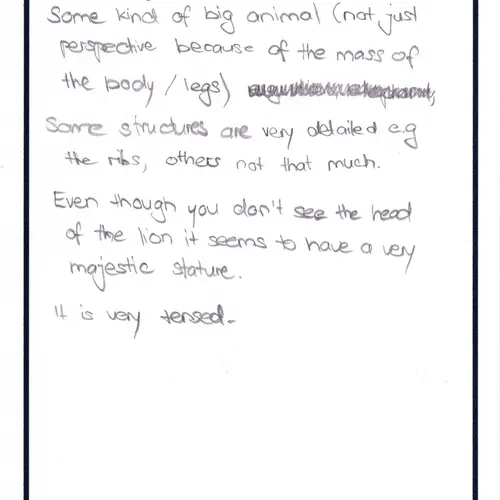 Some kind of big animal (not just
perspective because of the mass of
the body / legs)
Some structures are very detailed e.g
the ribs, others not that much.
Even though you don't see the head
of the lion it seems to have a very
majestic stature.
It is very tensed.